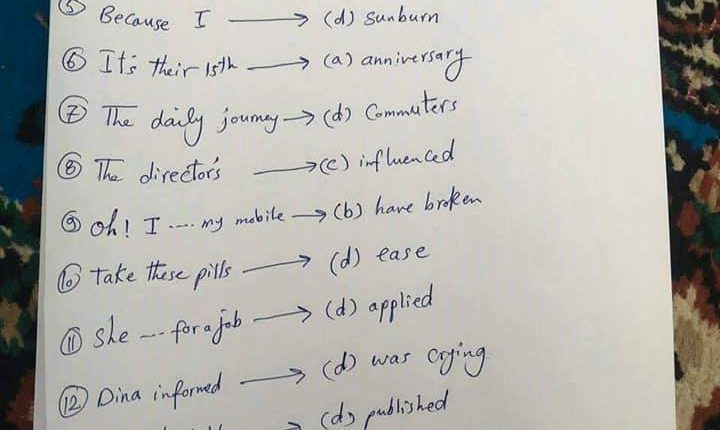 ⑤ Because I → (d) sunburn
⑥ It's their 15th → (a) anniversary
⑦ The daily journey → (d) Commuters
⑧ The director's → (c) influenced
⑨ Oh! I .... my mobile → (b) have broken
⑩ Take these pills → (d) ease
⑪ She --- for a job → (d) applied
⑫ Dina informed → (d) was crying
→ (d) published